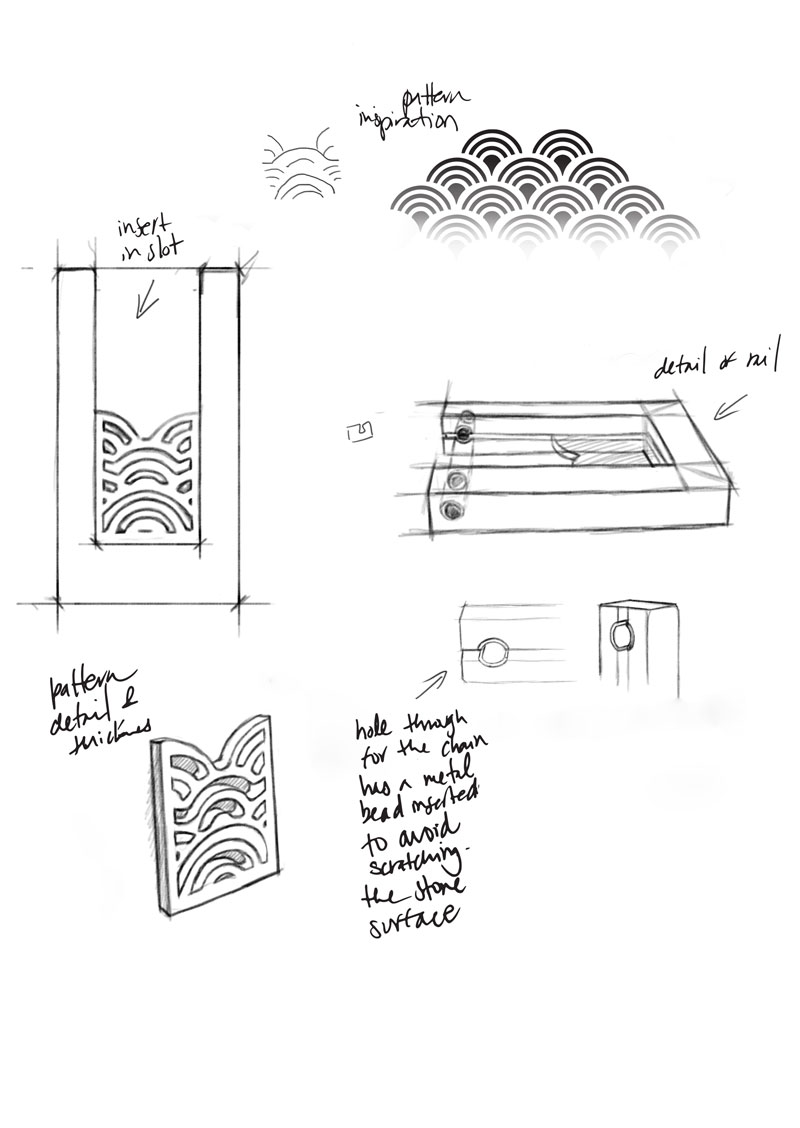 pattern
inspiration
insert
in slot
detail of rail
pattern
detail &
thickness
hole through
for the chain
has a metal
bead inserted
to avoid
scratching
the stone
surface